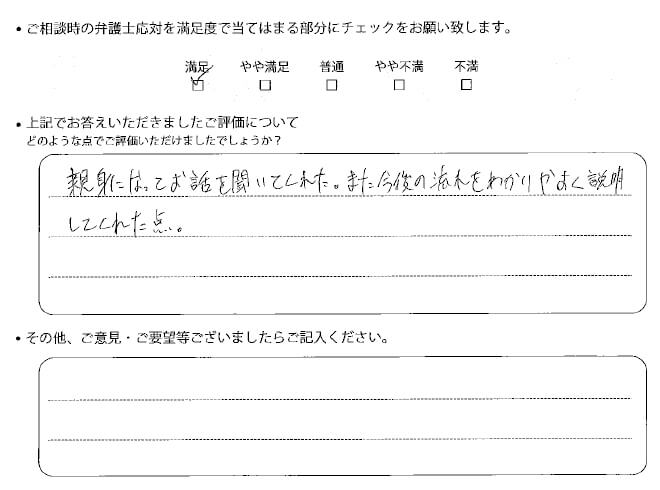 • ご相談時の弁護士応対を満足度で当てはまる部分にチェックをお願い致します。
満足 やや満足 普通 やや不満 不満
☑ □ □ □ □
• 上記でお答えいただきましたご評価について
どのような点でご評価いただけましたでしょうか？
親身になってお話を聞いてくれた。また今後の流れをわかりやすく説明
してくれた点。
• その他、ご意見・ご要望等ございましたらご記入ください。